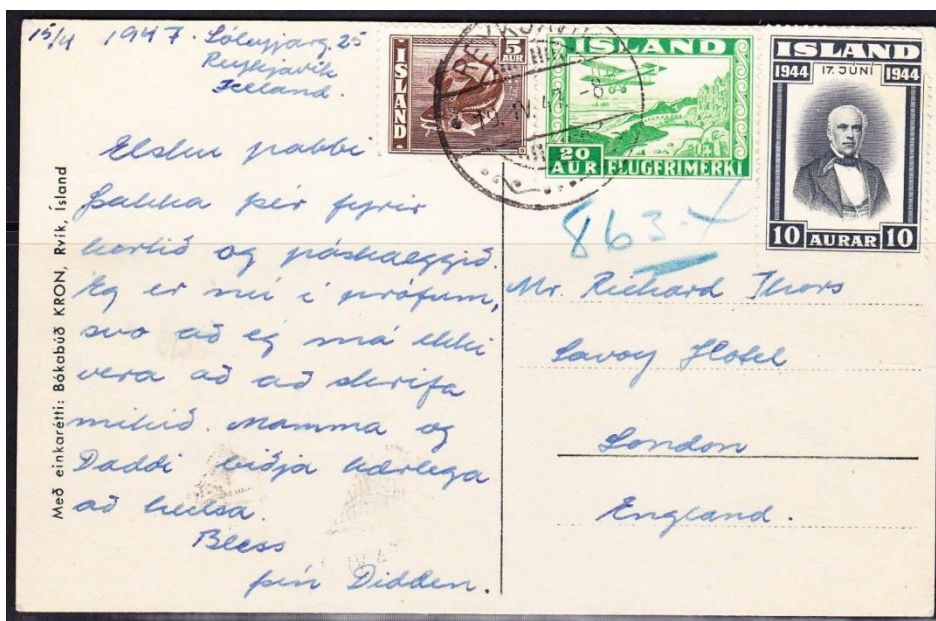 15/4 1947. Sóleyjarg. 25
Reykjavík
Iceland.
Elsku pabbi.
Þakka þér fyrir
kortið og páskaeggið.
Ég er nú í prófum,
svo að ég má ekki
vera að að skrifa
mikið. Mamma og
Daddi biðja kærlega
að heilsa.
Bless
þín Didden.
Með einkarétti: Bókabúð KRON, Rvík, Ísland
5
AUR
ÍSLAND
REYKJAVÍK
IV.47 -8
ÍSLAND
20
AUR FLUGFRIMERKI
ISLAND
1944 17. JÚNÍ 1944
10 AURAR 10
863
Mr. Richard Thors
Savoy Hotel
London
England.